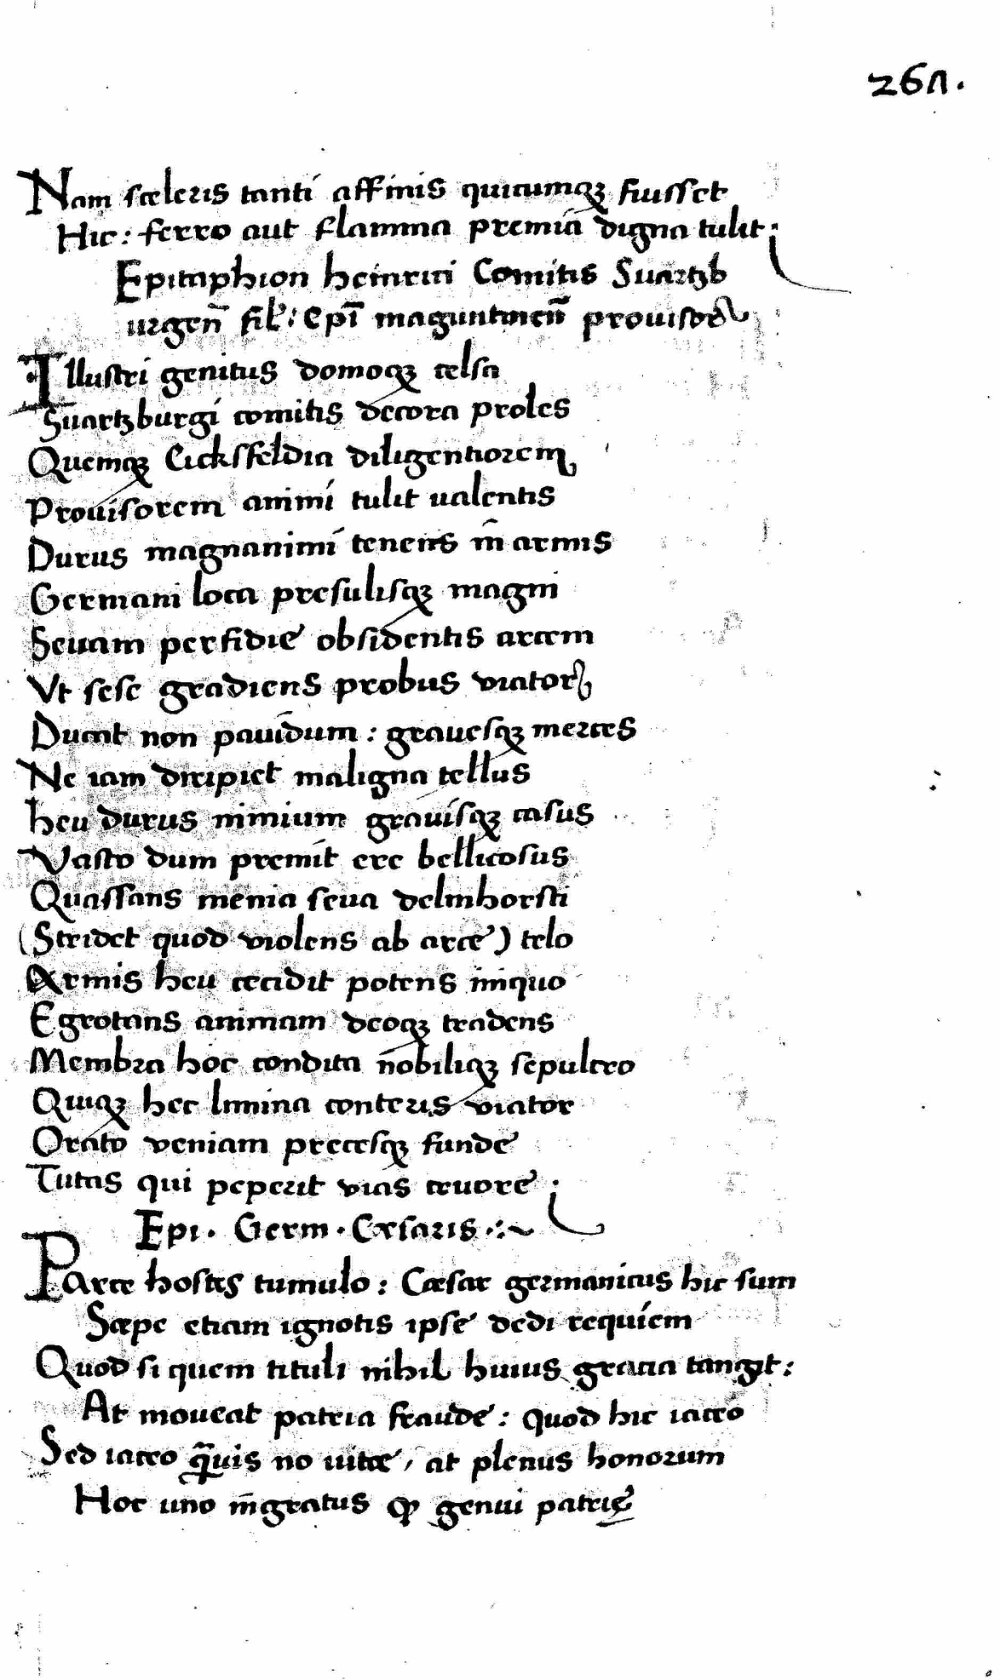 267.
Nam sceleris tanti affinis quicumqꝫ fuisset
Hic : ferro aut flamma premia digna tulit :
Epitaphion heinrici Comitis Suartzb
urgen̄ fil : Epī maguntinen̄ prouisor
Illustri genitus domoqꝫ celsa
Suartzburgi comitis decora proles
Quemqꝫ Eicksfeldia diligentiorem
Prouisorem animi tulit ualentis
Durus magnanimi tenens in armis
Germani loca presulisqꝫ magni
Seuam perfidie obsidentis arcem
Vt sese gradiens probus viator
Ducat non pauidum : grauesqꝫ merces
Ne iam diripiet maligna tellus
heu durus nimium grauisqꝫ casus
Vasto dum premit ere bellicosus
Quassans menia seua delmhorsti
(Stridet quod violens ab arce) telo
Armis heu cecidit potens iniquo
Egrotans animam deoqꝫ tradens
Membra hoc condita nobiliqꝫ sepulcro
Quiqꝫ hec limina conteris viator
Orato veniam precesqꝫ funde
Tutas qui peperit vias cruore .
Epi . Germ . Cæsaris .:~
Parce hostes tumulo : Cæsar germanicus hic sum
Sæpe etiam ignotis ipse dedi requiem
Quod si quem tituli nihil huius gracia tangit :
At moueat patria fraude : quod hic iaceo
Sed iaceo q̄uis no uitæ , at plenus honorum
Hoc uno īngratus ꝙ genui patrię